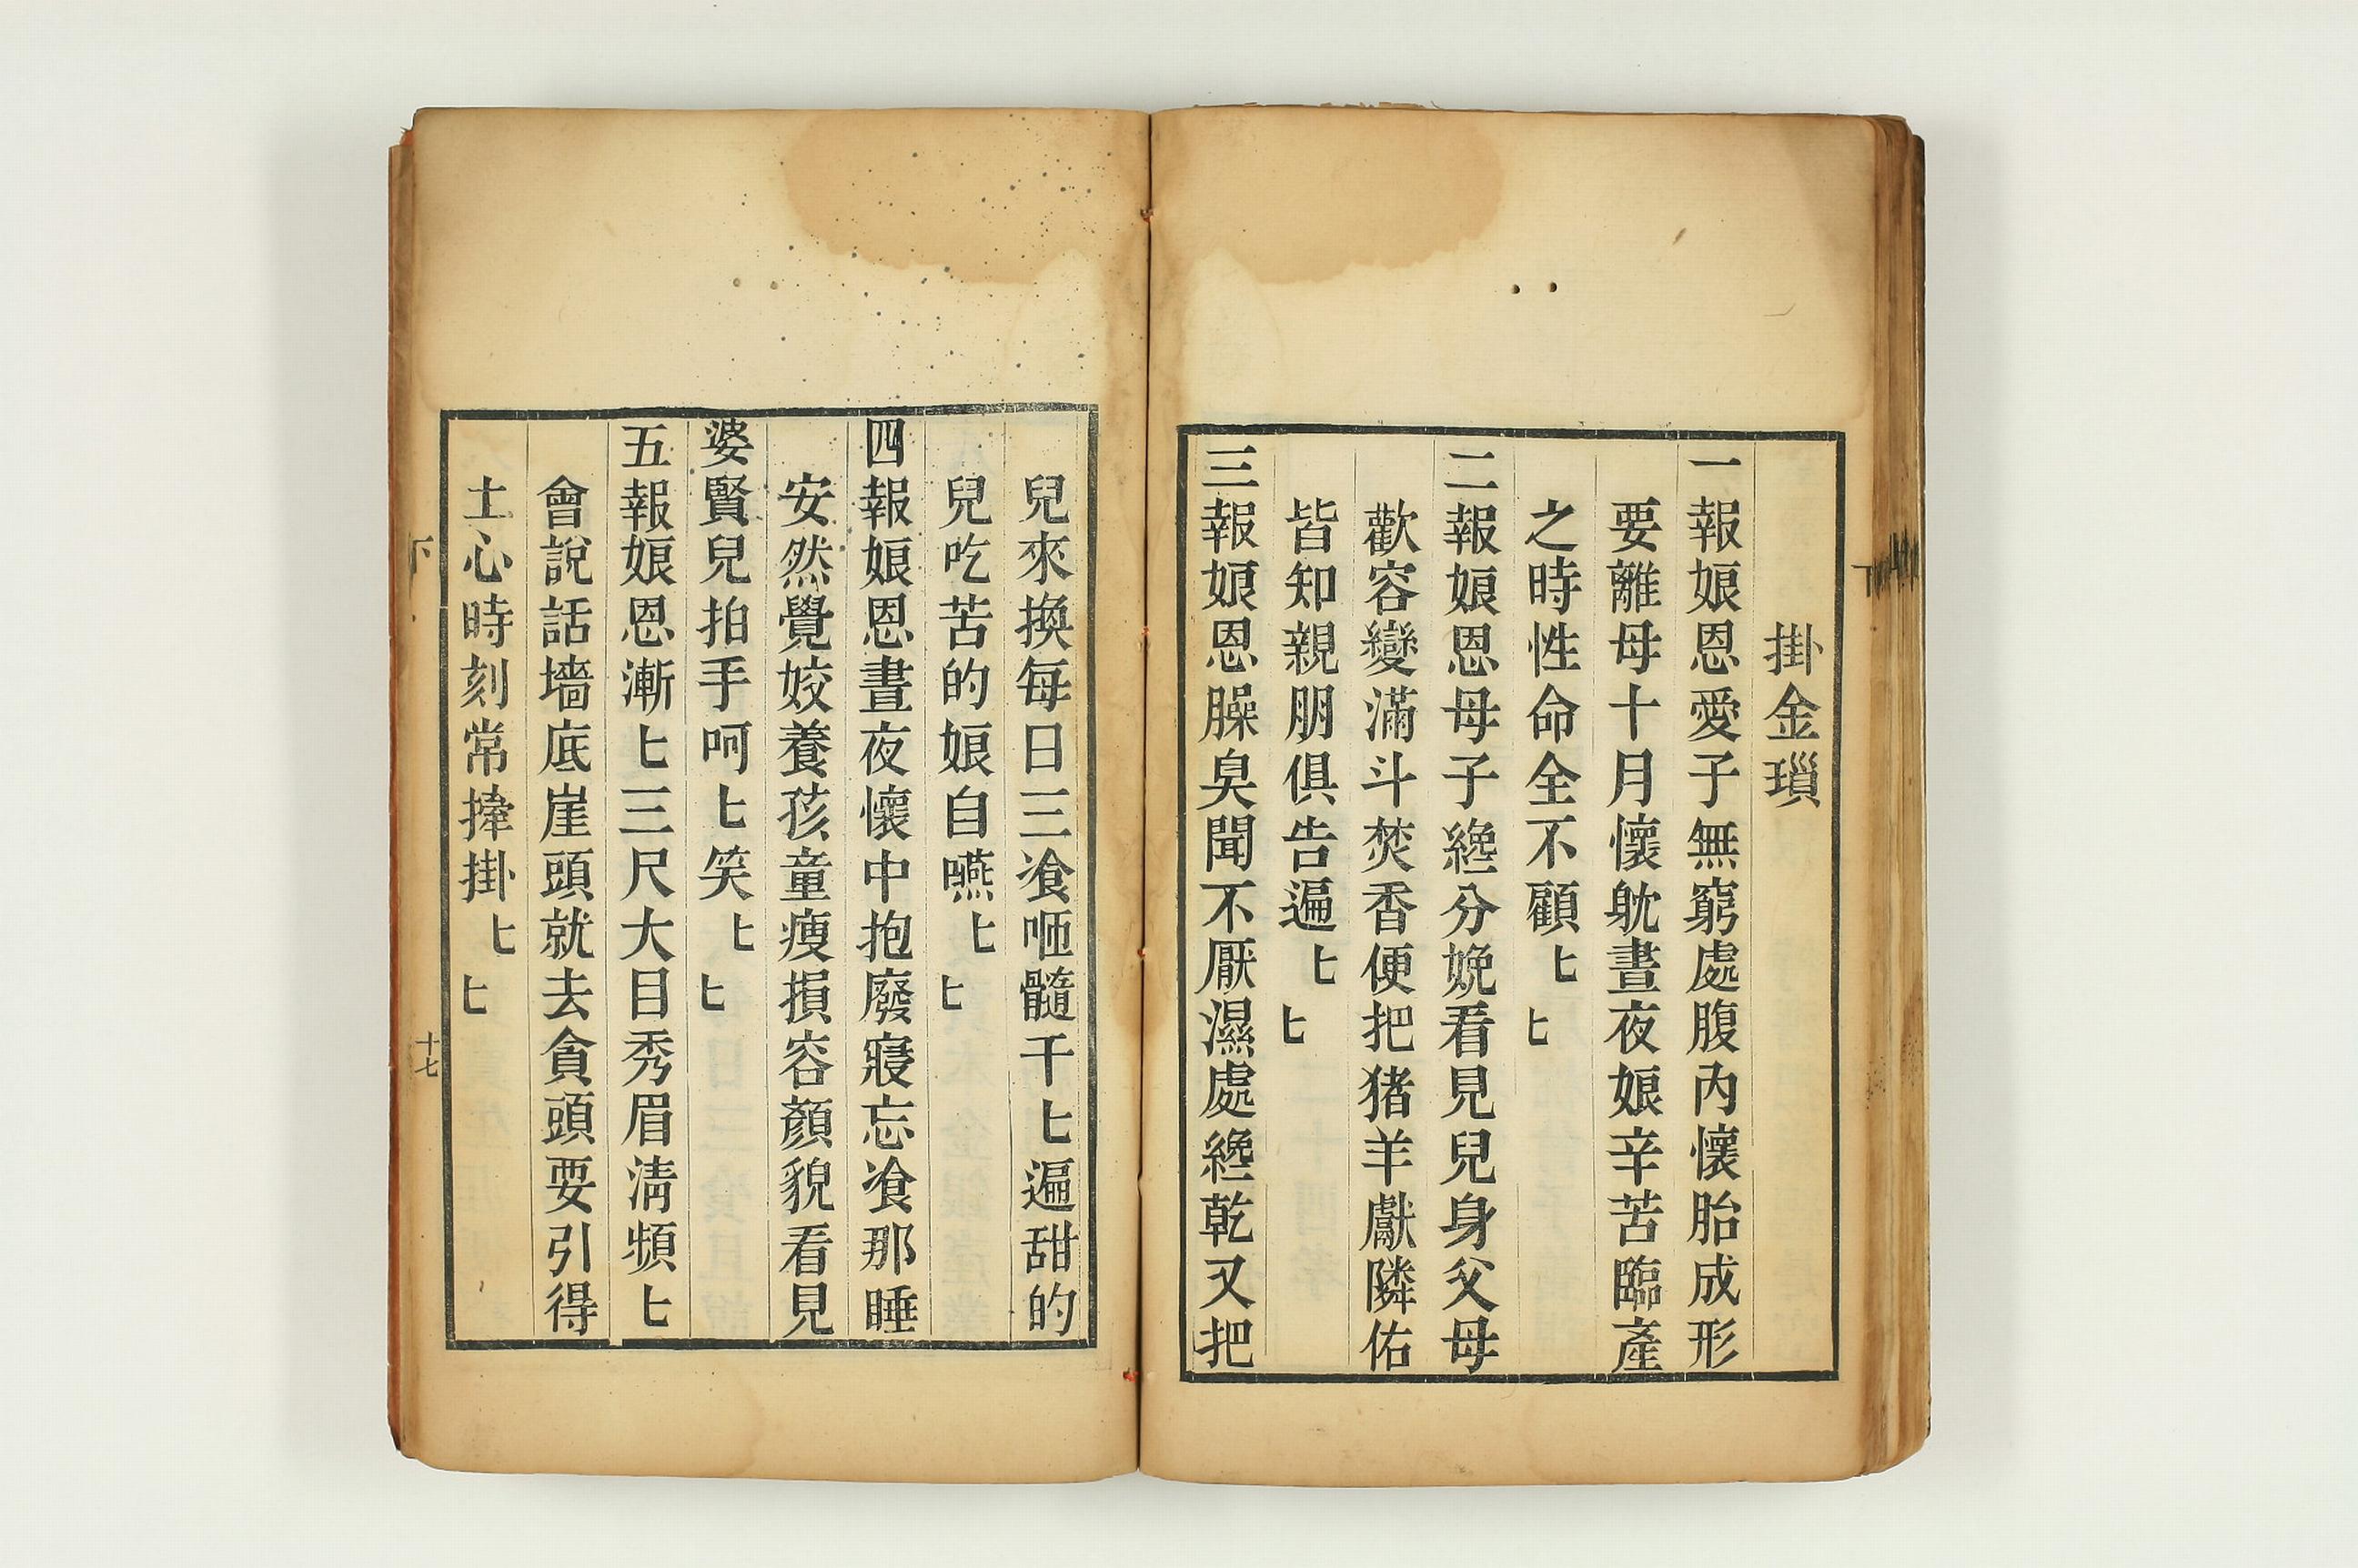 掛金瑣
一報娘恩愛子無窮處腹內懷胎成形
要離母十月懷躭晝夜娘辛苦臨產
之時性命全不顧〻〻
二報娘恩母子纔分娩看見兒身父母
歡容變滿斗焚香便把猪羊獻隣佑
皆知親朋俱告遍〻〻
三報娘恩臊臭聞不厭濕處纔乾又把
兒來換每日三飡咂髓千〻遍甜的
兒吃苦的娘自嚥〻〻
四報娘恩晝夜懷中抱廢寢忘飡那睡
安然覺姣養孩童瘦損容顏貌看見
婆賢兒拍手呵〻笑〻〻
五報娘恩漸〻三尺大目秀眉清頻〻
會說話墻底崖頭就去貪頭耍引得
土心時刻常掛〻〻
下
十七